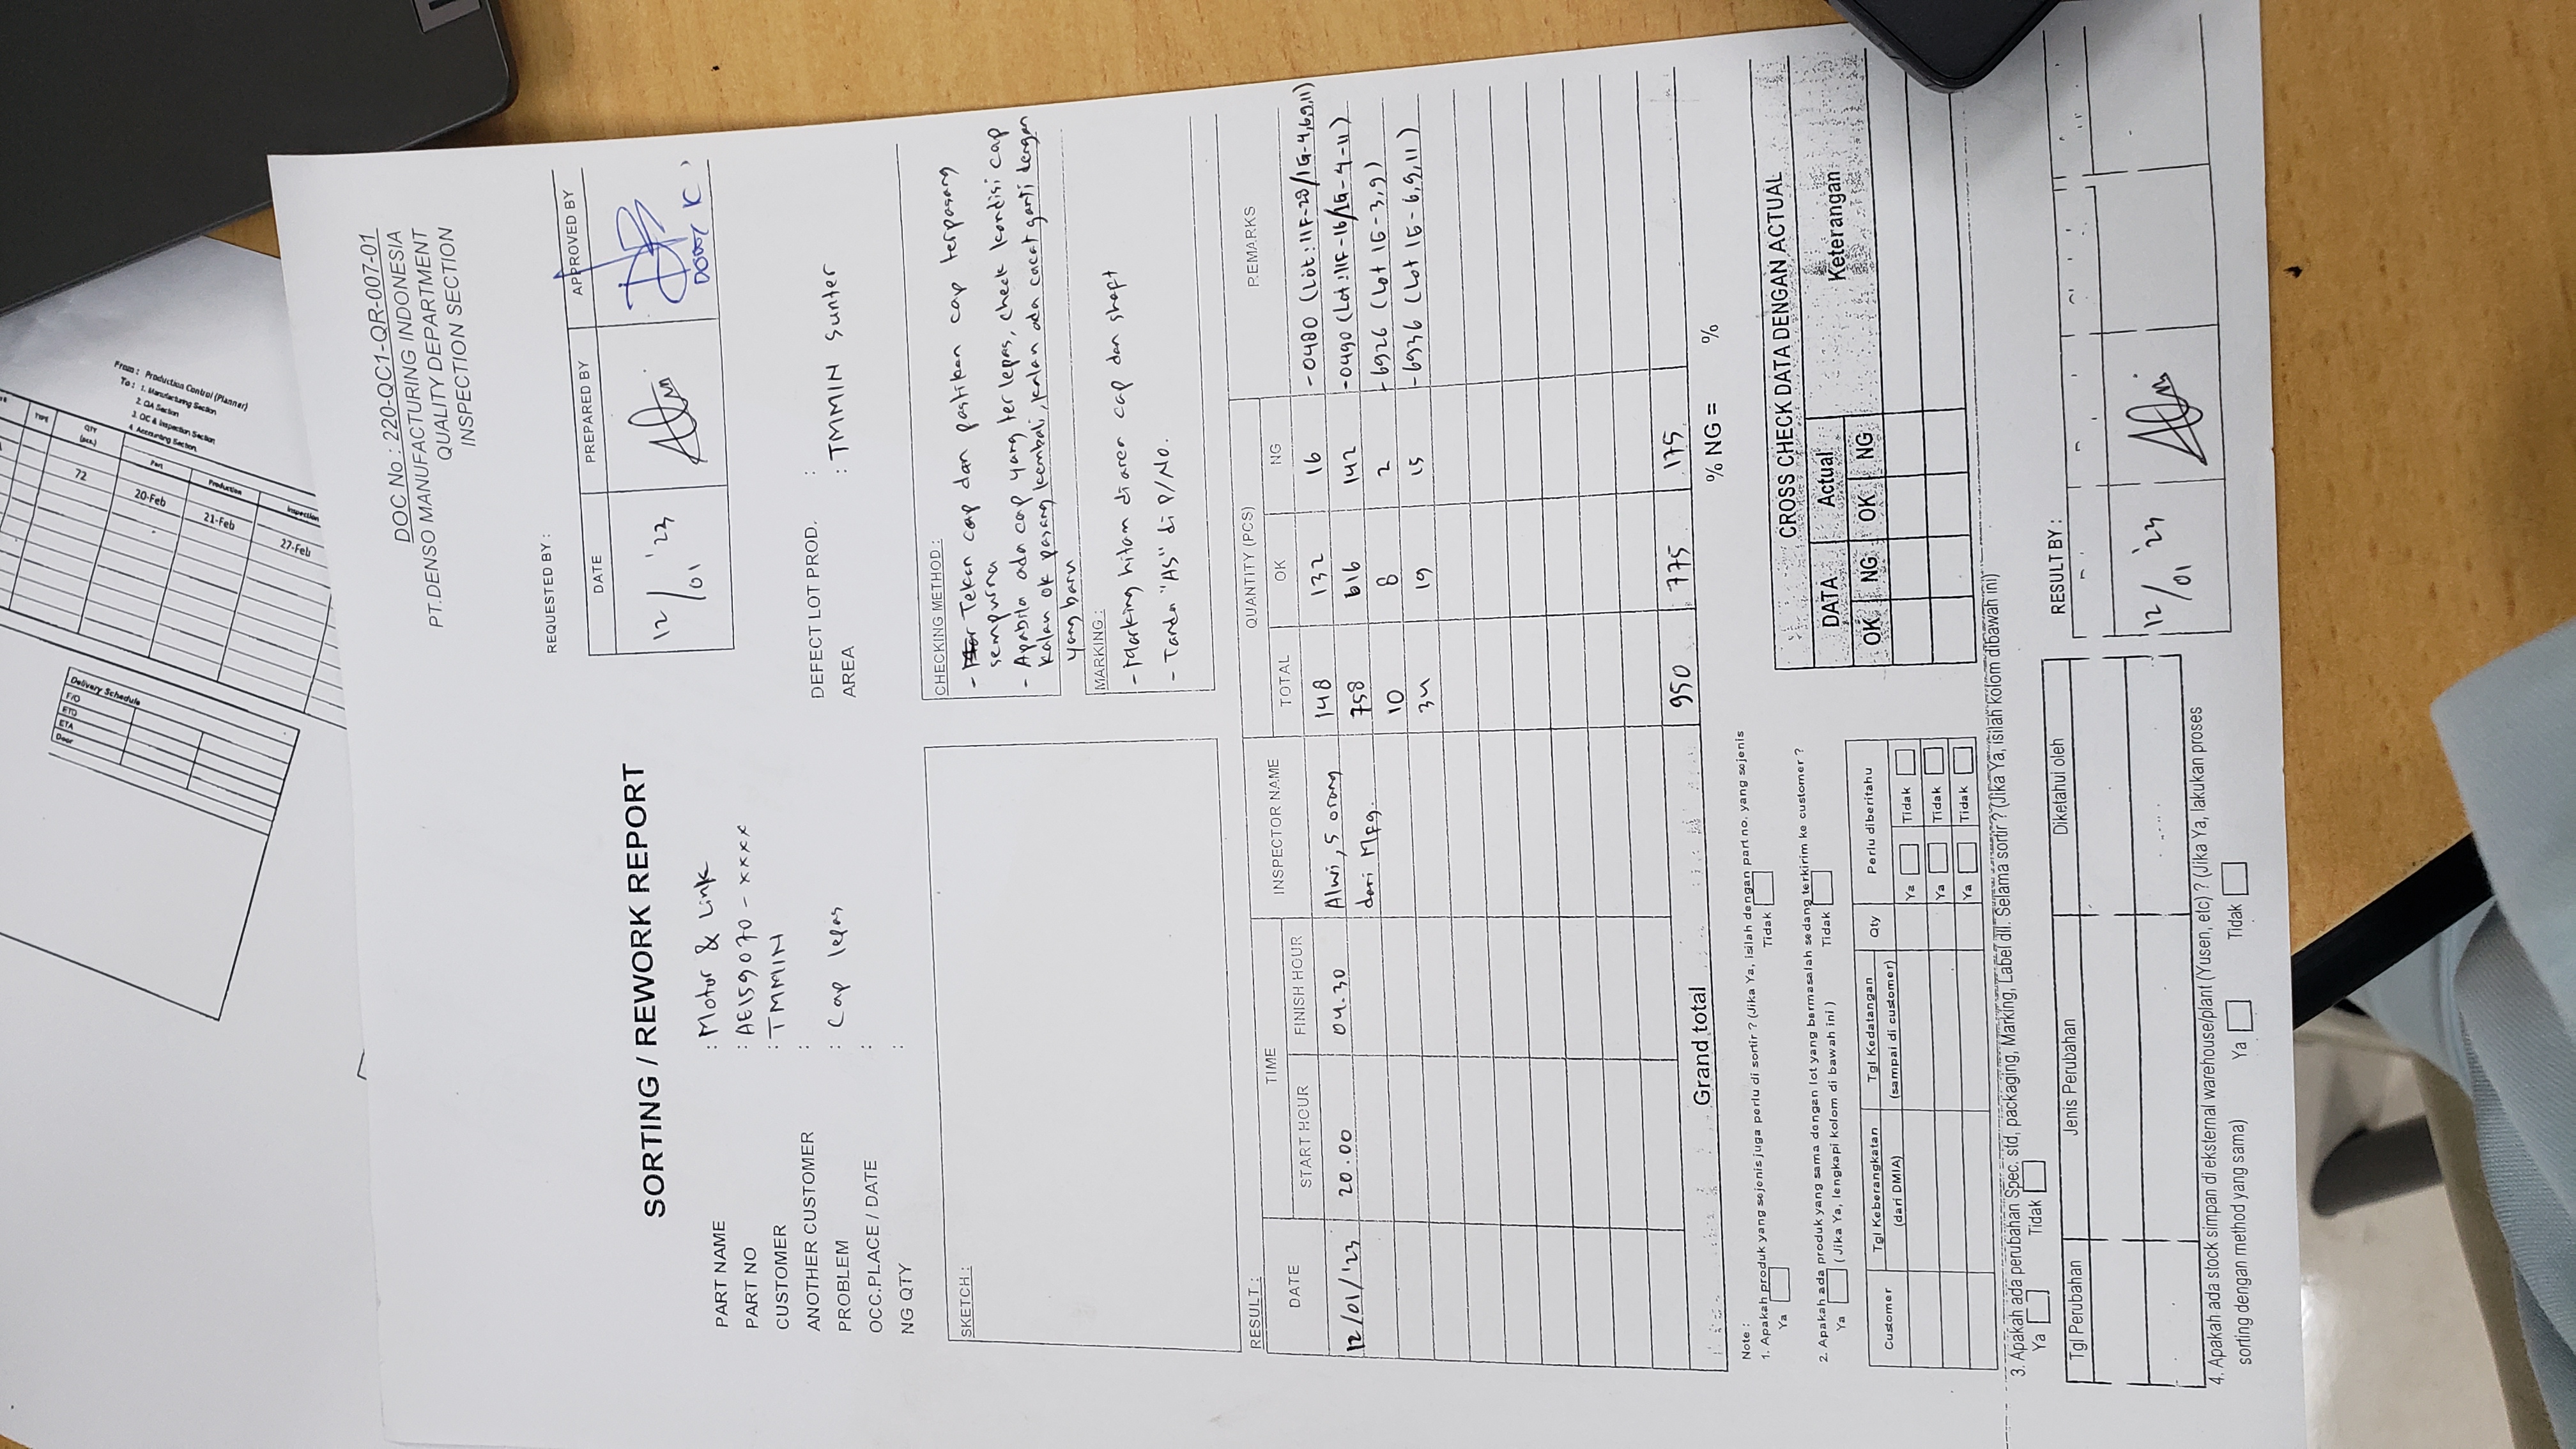 Delivery Schedule
F/O
ETD
ETA
Door
From : Production Control (Planner)
To : 1. Manufacturing Section
2. QA Section
3. QC & Inspection Section
4. Accounting Section
QTY
(pcs)
Part
Production
Inspection
72
20-Feb
21-Feb
27-Feb
DOC No : 220-QC1-QR-007-01
PT.DENSO MANUFACTURING INDONESIA
QUALITY DEPARTMENT
INSPECTION SECTION
REQUESTED BY :
DATE PREPARED BY APPROVED BY
12/01 '23
SORTING / REWORK REPORT
PART NAME : Motor & Link
PART NO : AE159070 - xxxx
CUSTOMER : TMMIN
ANOTHER CUSTOMER :
PROBLEM : Cap lepas
OCC.PLACE / DATE :
NG QTY :
DEFECT LOT PROD. :
AREA : TMMIN Sunter
SKETCH :
CHECKING METHOD :
- Tekan cap dan pastikan cap terpasang
sempurna
- Apabila ada cap yang terlepas, check kondisi cap
kalau ok pasang kembali, kalau ada cacat ganti dengan
yang baru
MARKING :
- Marking hitam diarea cap dan shaft
- Tanda "AS" di P/No.
RESULT :
DATE TIME INSPECTOR NAME QUANTITY (PCS) REMARKS
START HOUR FINISH HOUR TOTAL OK NG
12/01/'23 20.00 04.30 Alwi, 5 orang 148 132 16 -0480 (Lot : 11F-28/1G-4,6,9,11)
dari Mfg. 758 616 142 -0490 (Lot : 11F-16/1G-4-11)
10 8 2 -6926 (Lot 1G-3,9)
34 19 15 -6936 (Lot 1G-6,9,11)
Grand total 950 775 175
% NG = %
Note :
1. Apakah produk yang sejenis juga perlu di sortir ? (Jika Ya, isilah dengan part no. yang sejenis
Ya Tidak
2. Apakah ada produk yang sama dengan lot yang bermasalah sedang terkirim ke customer ?
Ya ( Jika Ya, lengkapi kolom di bawah ini ) Tidak
Customer Tgl Keberangkatan Tgl Kedatangan Qty Perlu diberitahu
(dari DMIA) (sampai di customer)
Ya Tidak
Ya Tidak
Ya Tidak
CROSS CHECK DATA DENGAN ACTUAL
DATA Actual Keterangan
OK NG OK NG
3. Apakah ada perubahan Spec. std, packaging, Marking, Label dll. Selama sortir ? (Jika Ya, isilah kolom dibawah ini)
Ya Tidak
Tgl Perubahan Jenis Perubahan Diketahui oleh
RESULT BY :
12/01 '23
4. Apakah ada stock simpan di eksternal warehouse/plant (Yusen, etc) ? (Jika Ya, lakukan proses
sorting dengan method yang sama) Ya Tidak